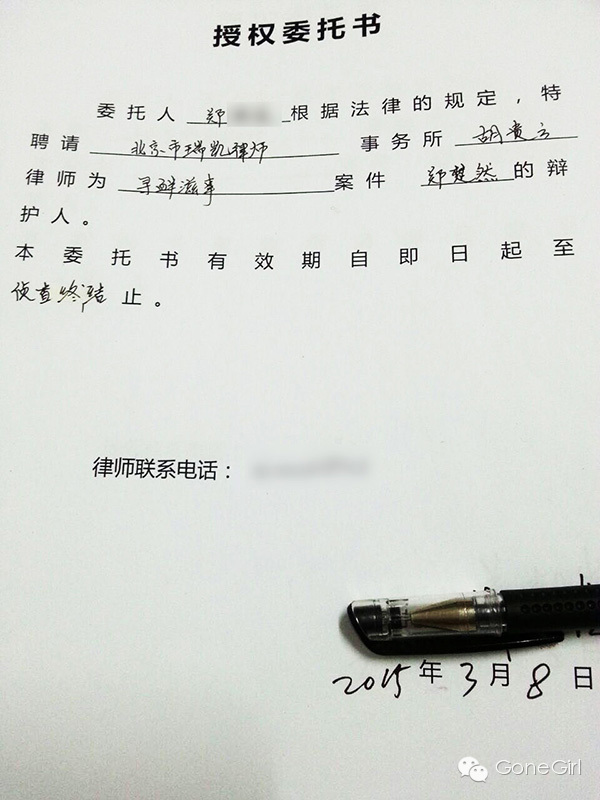 授权委托书
委托人 郑 根据法律的规定，特
聘请 北京市瑞凯律师 事务所 胡贵云
律师为 寻衅滋事 案件 郑楚然 的辩
护人。
本委托书有效期自即日起至
侦查终结止。
律师联系电话：
2015年3月8日
GoneGirl